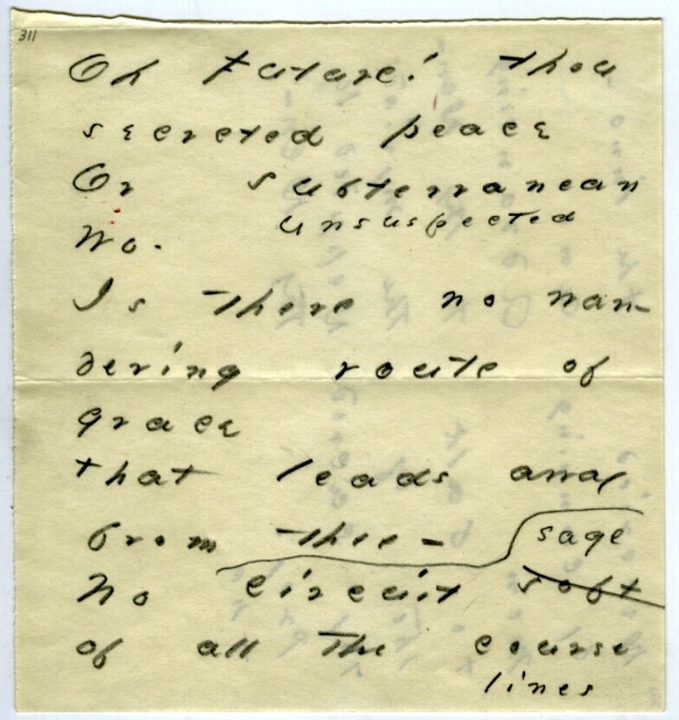 311
Oh Future! thou
secreted peace
Or subterranean
Wo.
unsuspected
Is there no wan-
dering route of
grace
that leads away
from thee -
sage
No circuit soft
of all the course
lines